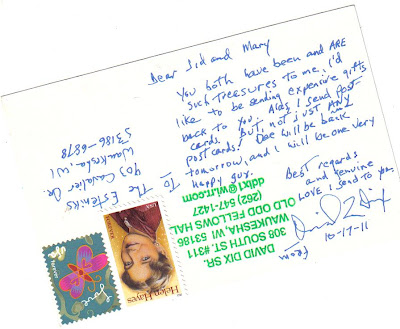 Dear Sid and Mary
You both have been and ARE
such treesures to me. I'd
like to be sending expensive gifts
back to you. Alas, I send Post-
cards. But, not just ANY
postcards! Dee will be back
tomorrow, and I will be one very
happy guy.
Best regards
and genuine
LOVE I send to you,
10-17-11
From
DAVID DIX SR.
308 SOUTH ST. #311
WAUKESHA, WI 53186
OLD ODD FELLOWS HALL
(262) 547-1427
ddixt@wi.rr.com
To
The
903 Cavalier Dr.
Waukesha, WI
53186-6878
Helen Hayes
USA
Love